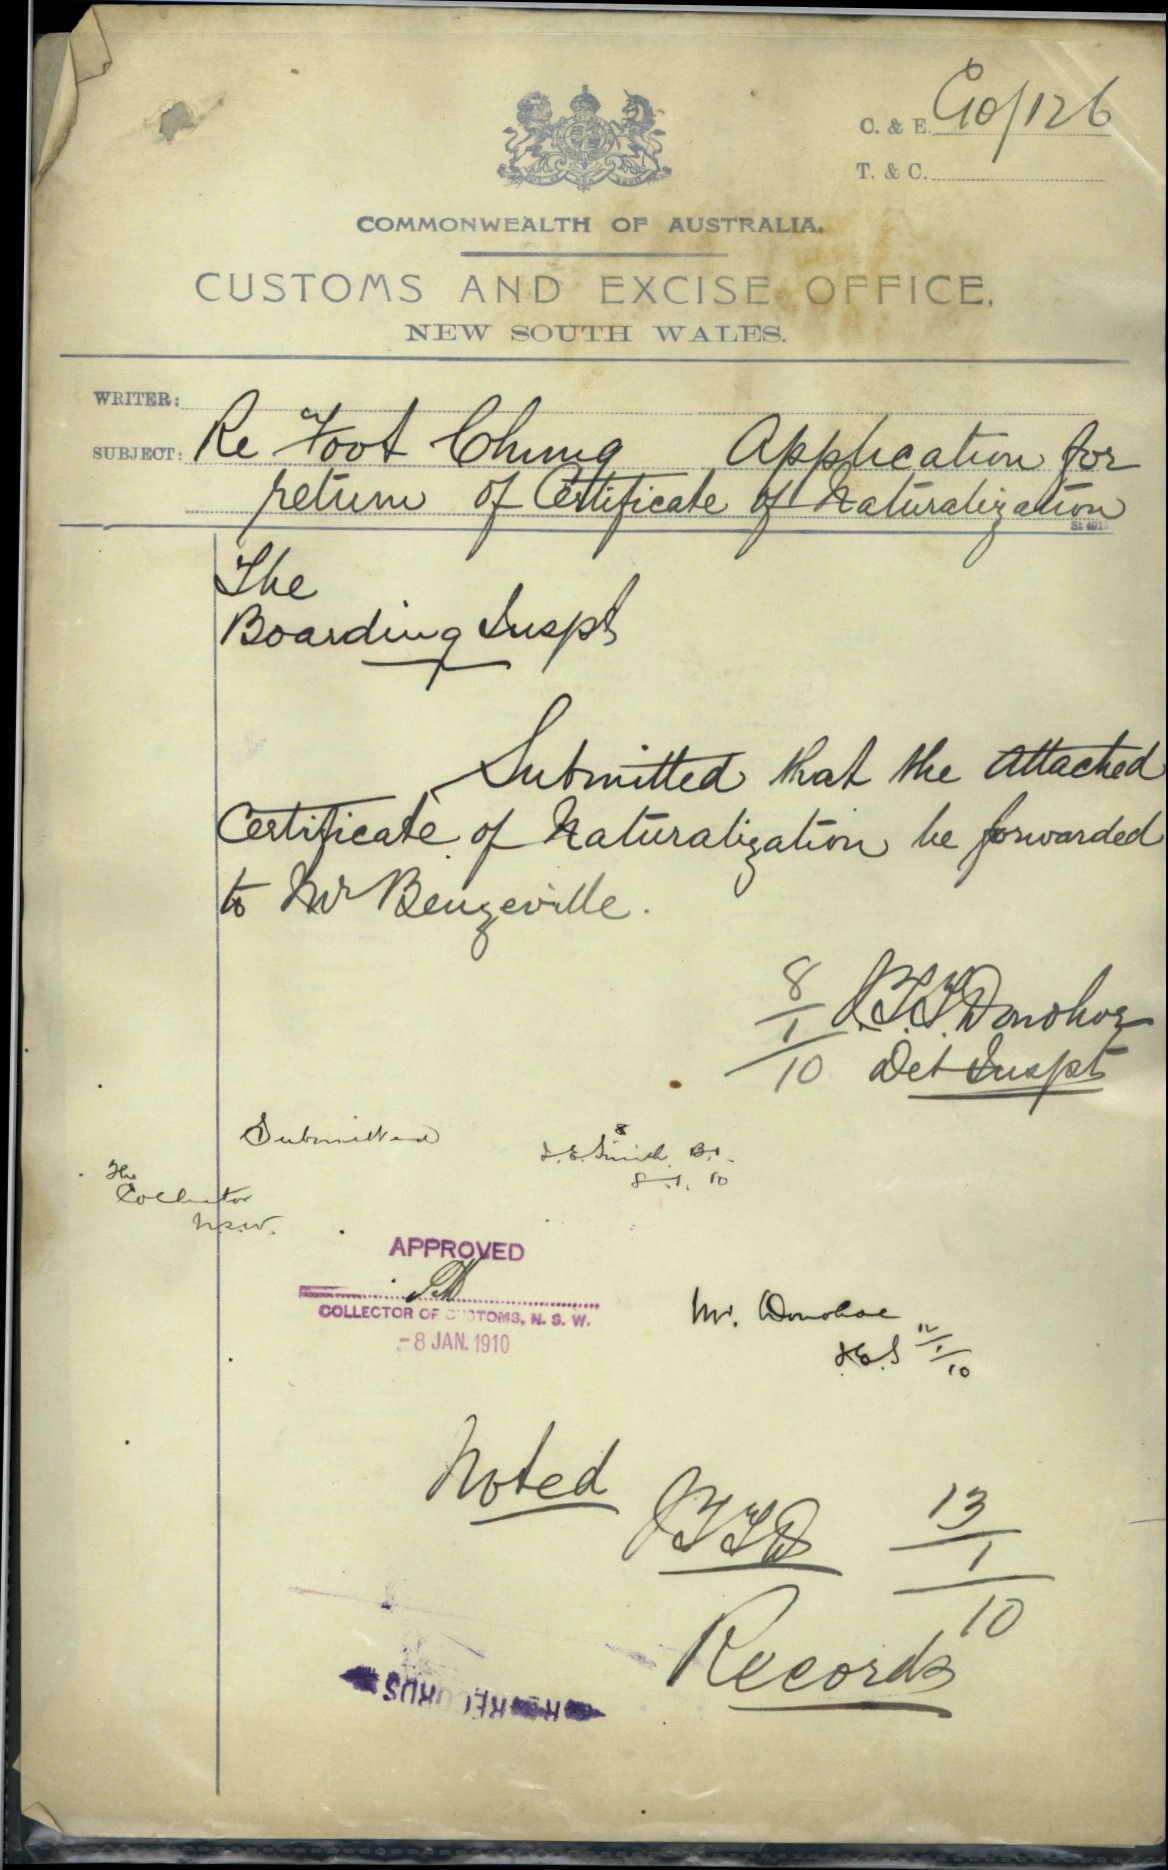 C. & E. C10/126
T. & C.
COMMONWEALTH OF AUSTRALIA.
CUSTOMS AND EXCISE OFFICE,
NEW SOUTH WALES.
WRITER:
SUBJECT: Re Foot Chung Application for
return of Certificate of Naturalization
The
Boarding Inspt
Submitted that the attached
Certificate of Naturalization be forwarded
to Mr Benzeville.
8/1/10 J.T.T. Donohoe
Det Inspt
Submitted
J.E. Smith B.I.
8.1.10
The
Collector
N.S.W.
APPROVED
COLLECTOR OF CUSTOMS, N. S. W.
-8 JAN. 1910
Mr. Donohoe
J.E.S 12/1/10
Noted
JTTD 13/1/10
Records
RECORDS